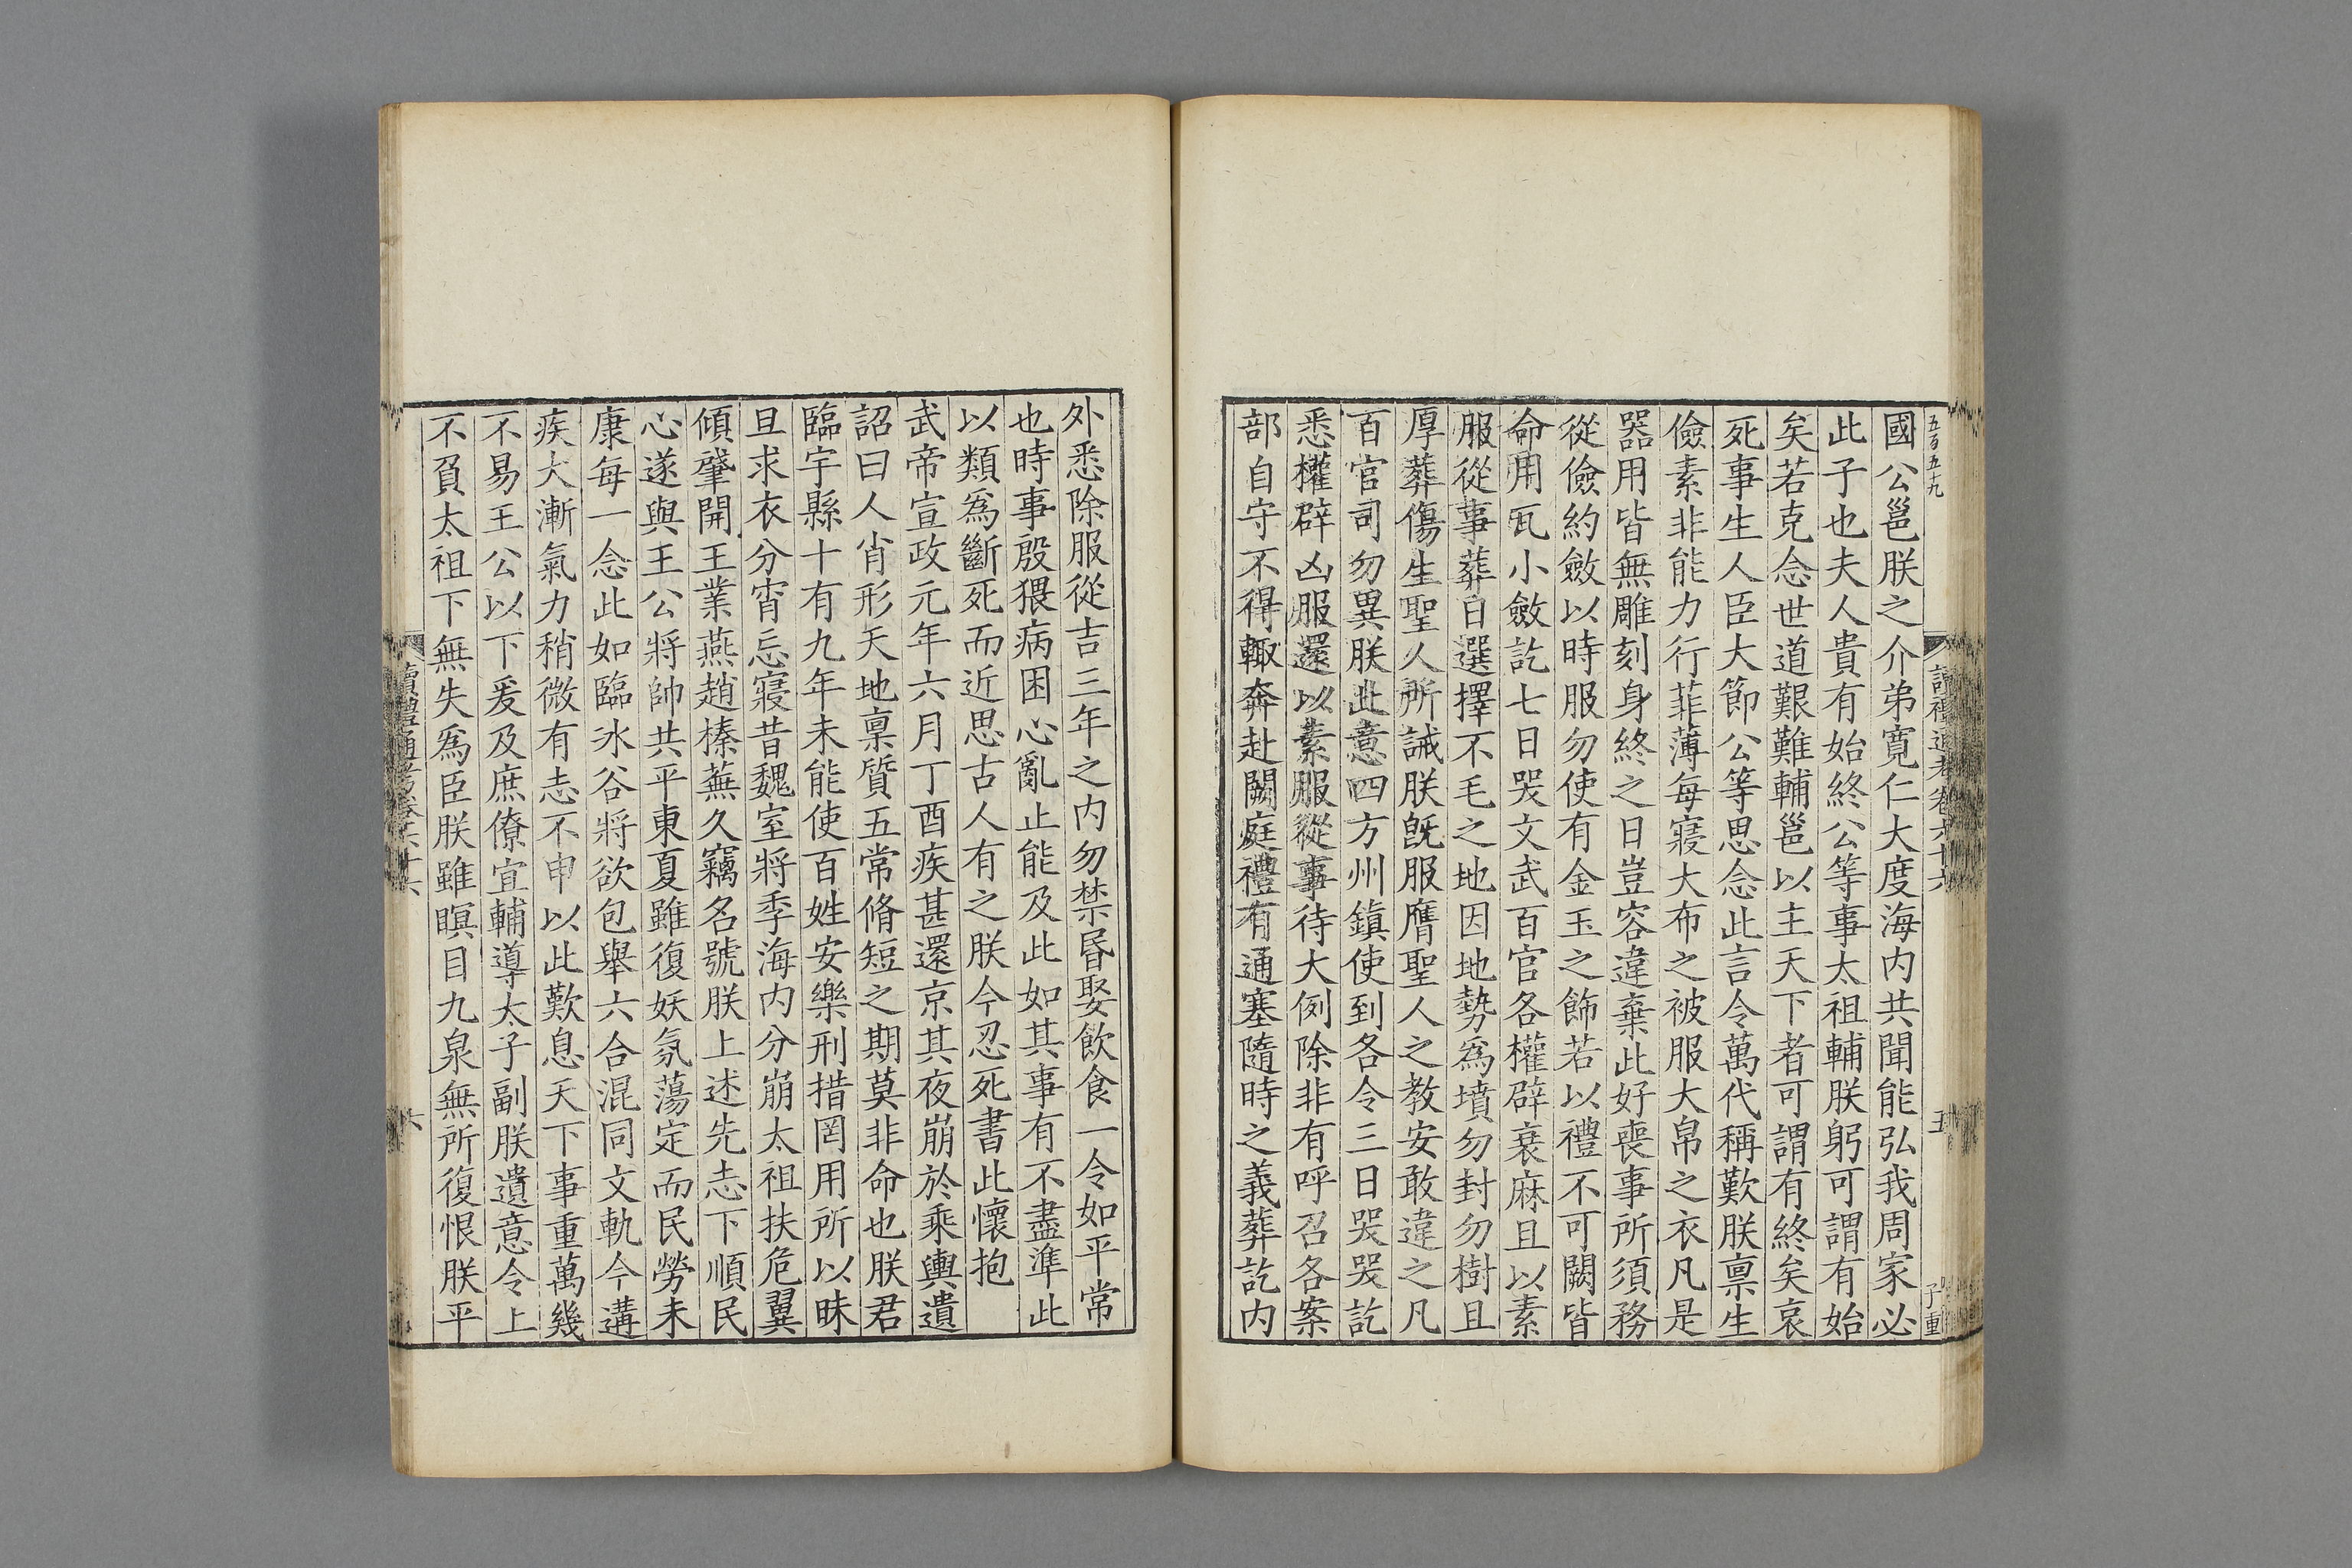 五百五十九
讀禮通考卷六十六
五
子重
國公邕朕之介弟寛仁大度海内共聞能弘我周家必
此子也夫人貴有始終公等事太祖輔朕躬可謂有始
矣若克念世道艱難輔邕以主天下者可謂有終矣哀
死事生人臣大節公等思念此言令萬代稱歎朕禀生
儉素非能力行菲薄每寢大布之被服大帛之衣凡是
器用皆無雕刻身終之日豈容違棄此好喪事所須務
從儉約斂以時服勿使有金玉之飾若以禮不可闕皆
命用瓦小斂訖七日哭文武百官各權辟衰麻且以素
服從事葬日選擇不毛之地因地勢爲墳勿封勿樹且
厚葬傷生聖人所誡朕旣服膺聖人之教安敢違之凡
百官司勿異朕此意四方州鎮使到各令三日哭哭訖
悉權辟凶服還以素服從事待大例除非有呼召各案
部自守不得輙奔赴闕庭禮有通塞隨時之義葬訖内
外悉除服從吉三年之内勿禁昏娶飲食一令如平常
也時事殷猥病困心亂止能及此如其事有不盡準此
以類爲斷死而近思古人有之朕今忍死書此懷抱
武帝宣政元年六月丁酉疾甚還京其夜崩於乘輿遺
詔曰人肖形天地禀質五常脩短之期莫非命也朕君
臨宇縣十有九年未能使百姓安樂刑措罔用所以昧
旦求衣分宵忘寢昔魏室將季海内分崩太祖扶危翼
傾肇開王業燕趙榛蕪久竊名號朕上述先志下順民
心遂與王公將帥共平東夏雖復妖氛蕩定而民勞未
康每一念此如臨冰谷將欲包舉六合混同文軌今遘
疾大漸氣力稍微有志不申以此歎息天下事重萬幾
不易王公以下爰及庶僚宜輔導太子副朕遺意令上
不負太祖下無失爲臣朕雖瞑目九泉無所復恨朕平
讀禮通考卷六十六
六